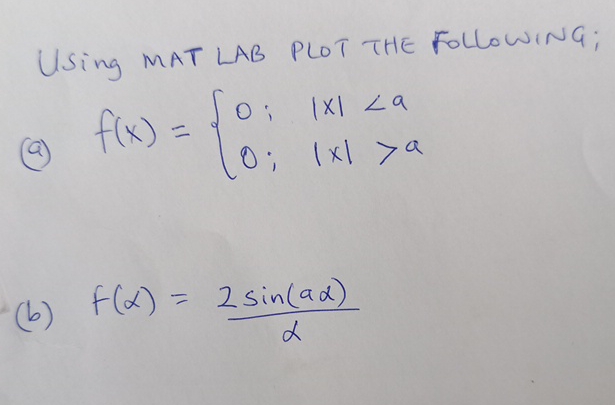 Using MATLAB PLOT THE FOLLOWING;
(a) f(x) = { 0; |x| < a
0; |x| > a
(b) f(α) = 2 sin(aα)
α